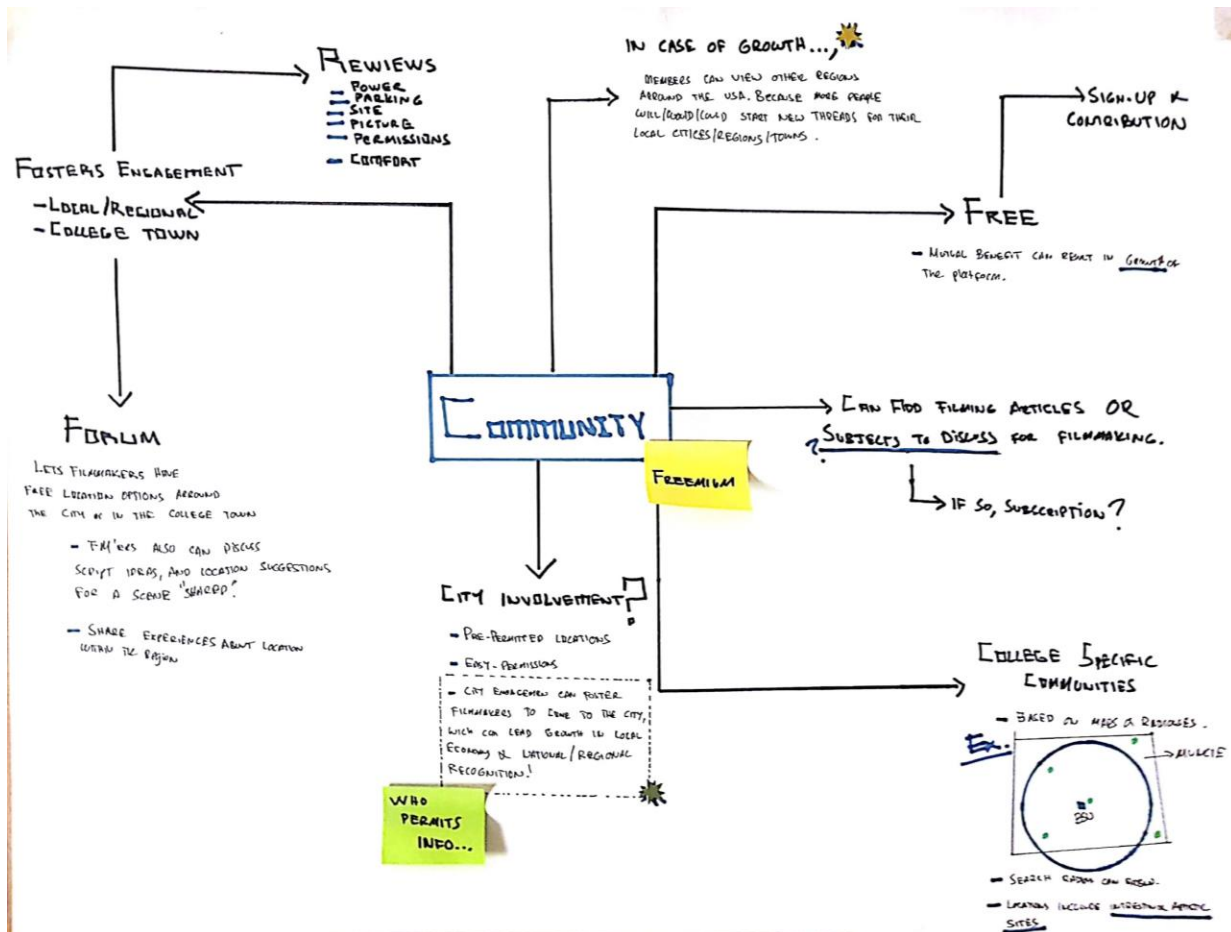 REWIEWS
- POWER
- PARKING
- SITE
- PICTURE
- PERMISSIONS
- COMFORT
FOSTERS ENGAGEMENT
- LOCAL/REGIONAL
- COLLEGE TOWN
FORUM
LETS FILMMAKERS HAVE
FREE LOCATION OPTIONS ARROUND
THE CITY & IN THE COLLEGE TOWN
- FM'ERS ALSO CAN DISCUSS
SCRIPT IDEAS, AND LOCATION SUGGESTIONS
FOR A SCENE "SHARED"
- SHARE EXPERIENCES ABOUT LOCATION
WITHIN THE REGION
IN CASE OF GROWTH...,
MEMBERS CAN VIEW OTHER REGIONS
ARROUND THE USA. BECAUSE MORE PEOPLE
WILL/WOULD/COULD START NEW THREADS FOR THEIR
LOCAL CITICES/REGIONS/TOWNS.
SIGN-UP &
CONTRIBUTION
FREE
- MUTUAL BENEFIT CAN RESULT IN GROWTH OF
The platform.
COMMUNITY
FREEMIUM
CAN ADD FILMING ARTICLES OR
? SUBJECTS TO DISCUSS FOR FILMMAKING.
IF SO, SUBSCRIPTION?
CITY INVOLVEMENT?
- PRE-PERMITTED LOCATIONS
- EASY-PERMISSIONS
- CITY ENGAGEMEN CAN FOSTER
FILMMAKERS TO COME TO THE CITY,
WICH CAN LEAD GROWTH IN LOCAL
ECONOMY & NATIONAL/REGIONAL
RECOGNITION!
WHO
PERMITS
INFO...
COLLEGE SPECIFIC
COMMUNITIES
- BASED ON MAPS & RADIUSES.
Ex.
MUNCIE
BSU
- SEARCH RADIUS CAN
- LOCATIONS INCLUDE ARTISTIC
SITES